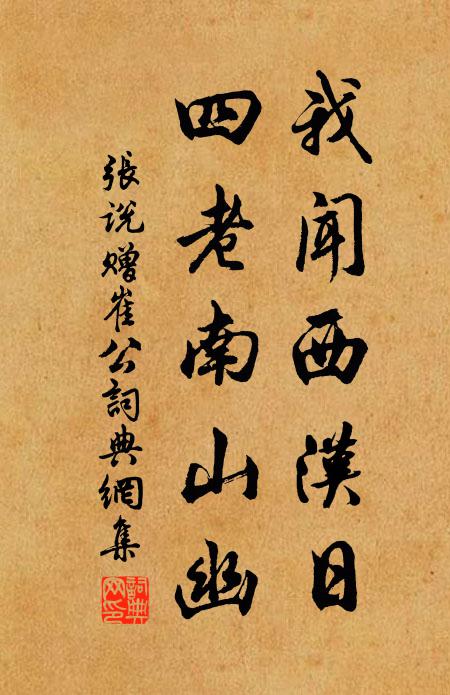 我闻西漢日
四老南山幽
張说赠崔公詞典網集
詞典網印